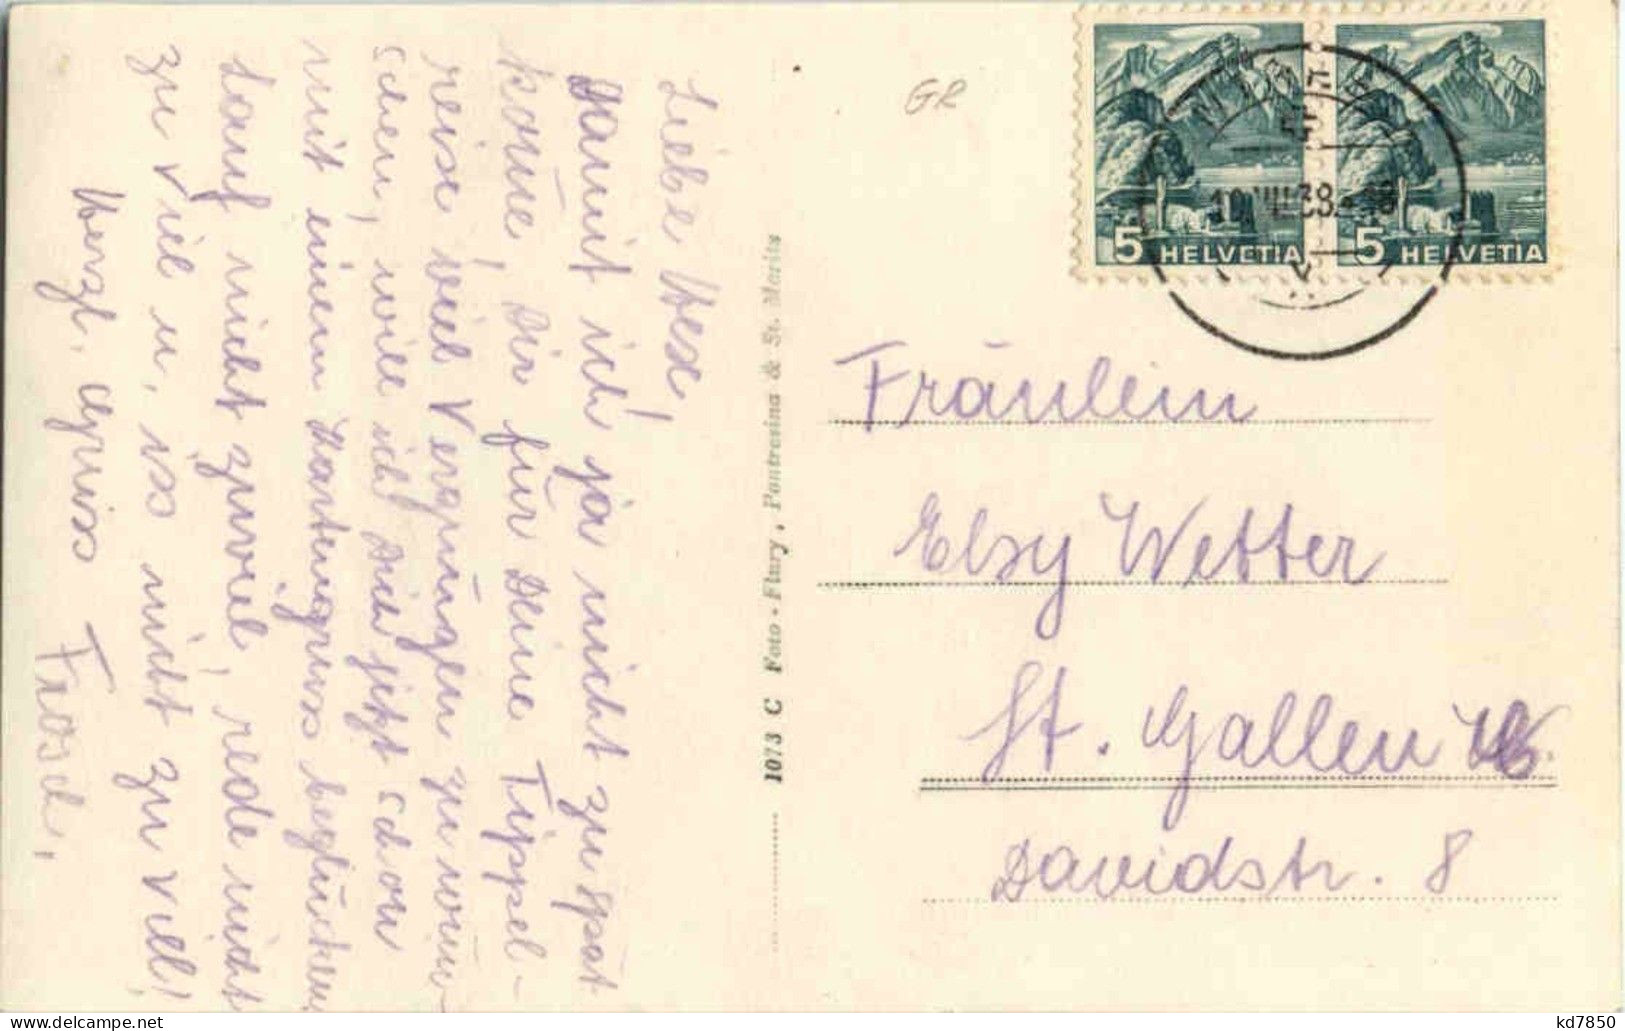 Liebe Hexe!
Damit ich ja nicht zu spät
kom̅e, Dir für Deine Tippel-
reise viel Vergnügen zu wün-
schen, will ich Dich jetzt schon
mit einem Kartengruss beglücken.
Lauf nicht zuviel, rede nicht
zu viel u. iss nicht zu viel!
Herzl. Gruss Frosch.
1073 C Foto - Flury, Pontresina & St. Moritz
GR
5 HELVETIA
5 HELVETIA
VIII 38
Fräulein
Elsy Wetter
St. Gallen
Davidstr. 8
kd7850